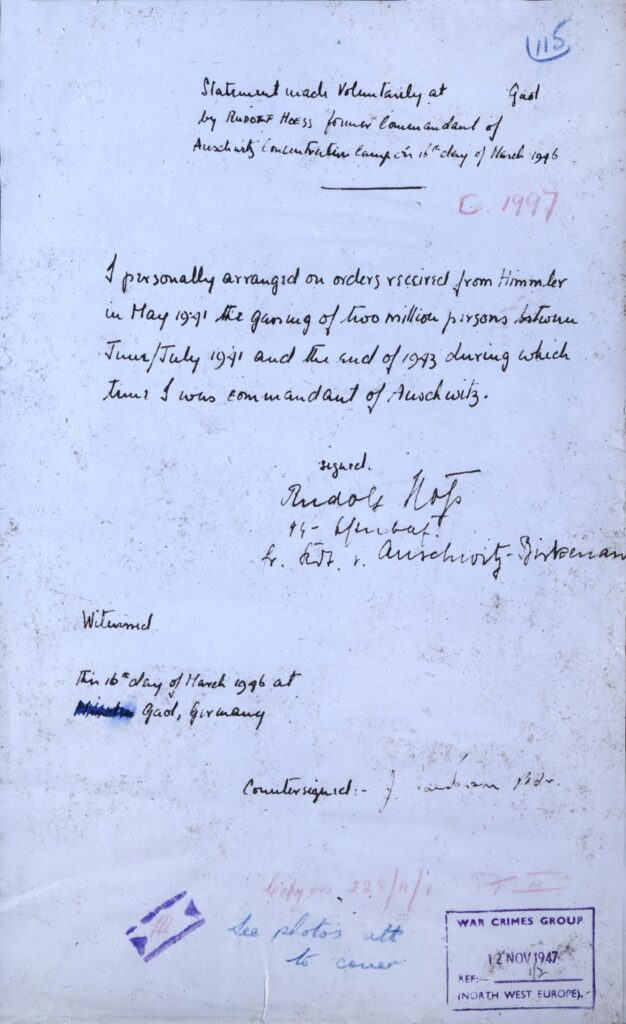 115
Statement made Voluntarily at Gaol
by RUDOLF HOESS former Commandant of
Auschwitz Concentration Camp on 16th day of March 1946
C. 1997
I personally arranged on orders received from Himmler
in May 1941 the gassing of two million persons between
June/July 1941 and the end of 1943 during which
time I was commandant of Auschwitz.
signed.
Rudolf Höß
Auschwitz-Birkenau
Witnessed
This 16th day of March 1946 at
Gaol, Germany
Countersigned:-
Copy on
See photos att
to cover
WAR CRIMES GROUP
12 NOV 1947
REF:-
(NORTH WEST EUROPE).